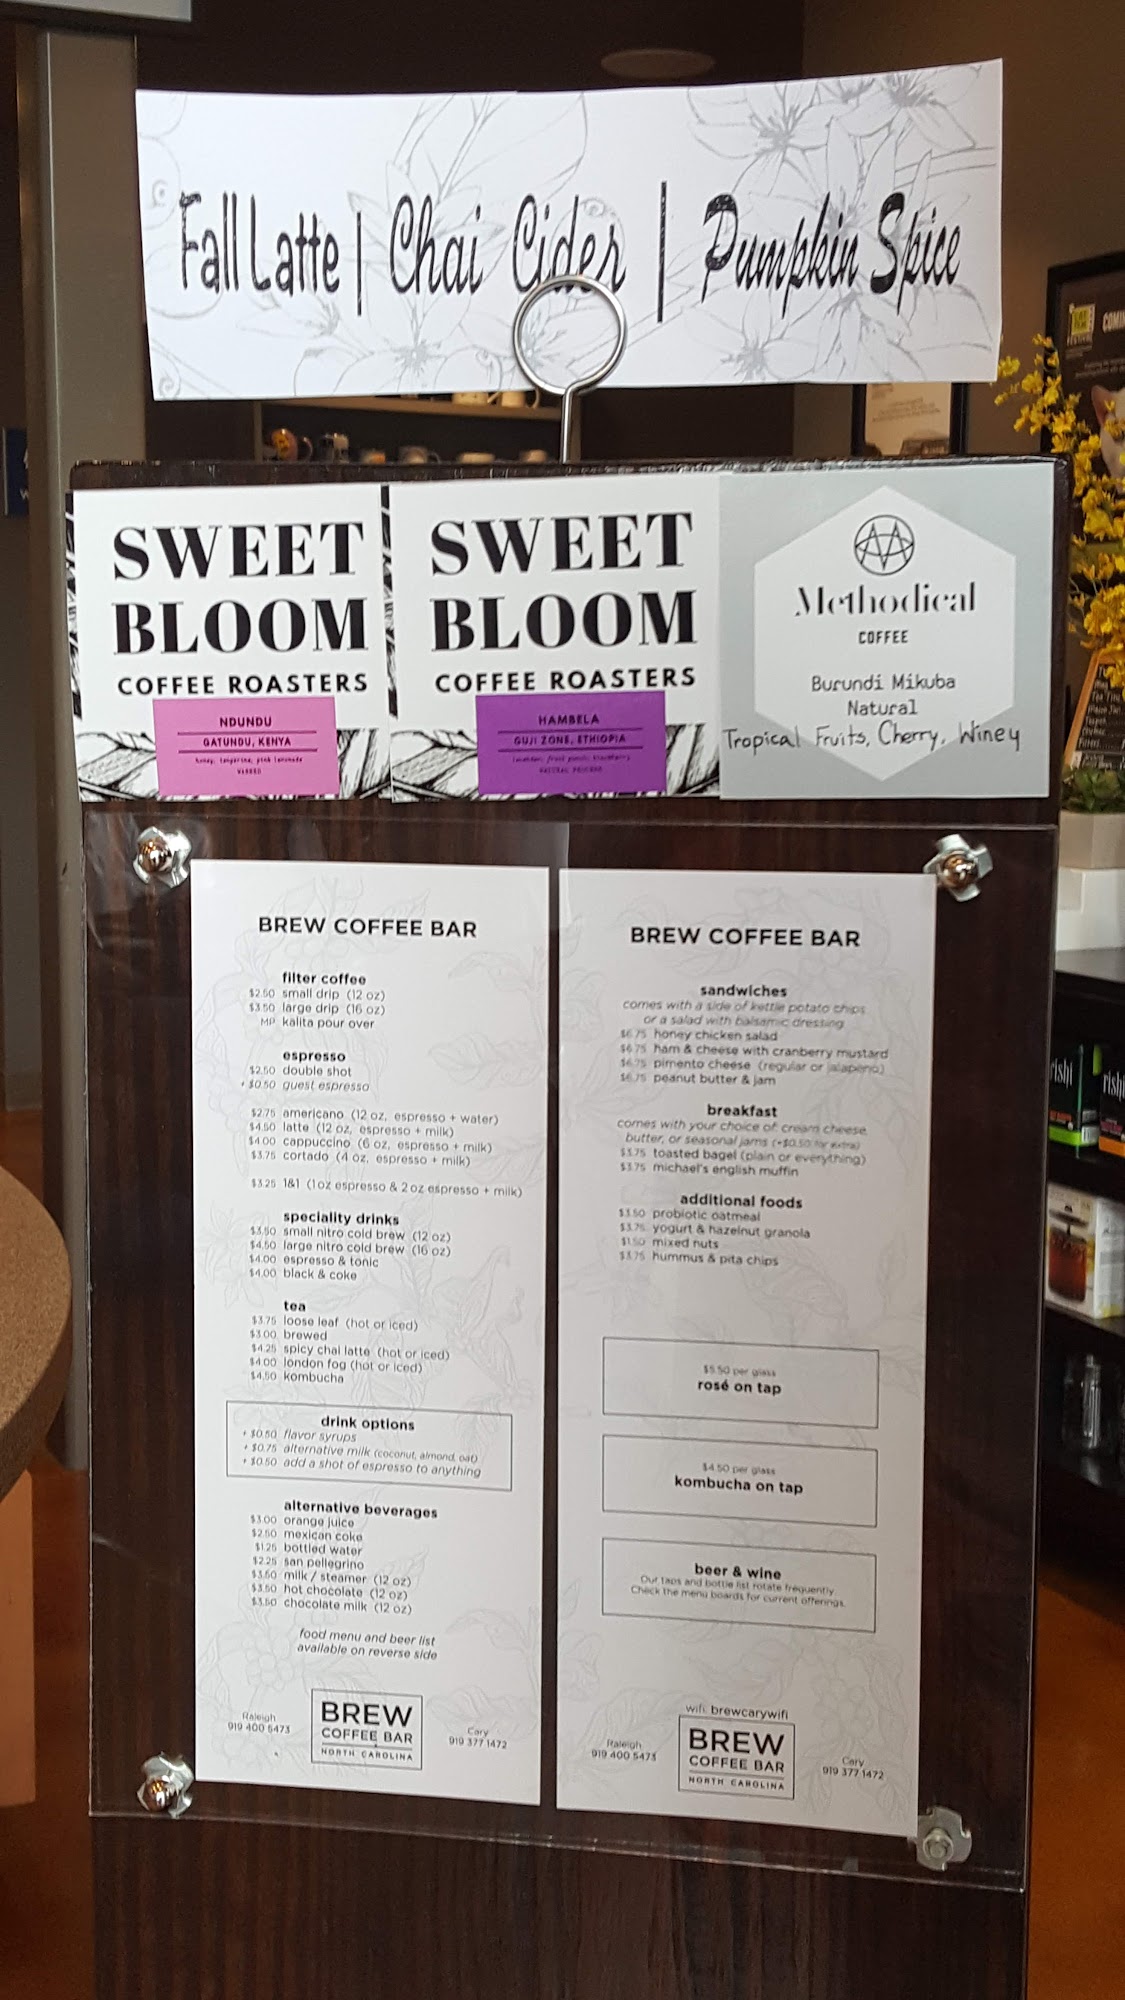 Fall Latte | Chai Cider | Pumpkin Spice
SWEET
BLOOM
COFFEE ROASTERS
NDUNDU
GATUNDU, KENYA
honey, tangerine, pink lemonade
WASHED
SWEET
BLOOM
COFFEE ROASTERS
HAMBELA
GUJI ZONE, ETHIOPIA
NATURAL PROCESS
Methodical
COFFEE
Burundi Mikuba
Natural
Tropical Fruits, Cherry, Winey
BREW COFFEE BAR
filter coffee
$2.50 small drip (12 oz)
$3.50 large drip (16 oz)
MP kalita pour over
espresso
$2.50 double shot
+ $0.50 guest espresso
$2.75 americano (12 oz, espresso + water)
$4.50 latte (12 oz, espresso + milk)
$4.00 cappuccino (6 oz, espresso + milk)
$3.75 cortado (4 oz, espresso + milk)
$3.25 1&1 (1 oz espresso & 2 oz espresso + milk)
speciality drinks
$3.50 small nitro cold brew (12 oz)
$4.50 large nitro cold brew (16 oz)
$4.00 espresso & tonic
$4.00 black & coke
tea
$3.75 loose leaf (hot or iced)
$3.00 brewed
$4.25 spicy chai latte (hot or iced)
$4.00 london fog (hot or iced)
$4.50 kombucha
drink options
+ $0.50 flavor syrups
+ $0.75 alternative milk (coconut, almond, oat)
+ $0.50 add a shot of espresso to anything
alternative beverages
$3.00 orange juice
$2.50 mexican coke
$1.25 bottled water
$2.25 san pellegrino
$3.50 milk / steamer (12 oz)
$3.50 hot chocolate (12 oz)
$3.50 chocolate milk (12 oz)
food menu and beer list
available on reverse side
Raleigh
919 400 5473
BREW
COFFEE BAR
NORTH CAROLINA
Cary
919 377 1472
BREW COFFEE BAR
sandwiches
comes with a side of kettle potato chips
or a salad with balsamic dressing
$6.75 honey chicken salad
$6.75 ham & cheese with cranberry mustard
$6.75 pimento cheese (regular or jalapeno)
$6.75 peanut butter & jam
breakfast
comes with your choice of: cream cheese,
butter, or seasonal jams (+$0.50 for extra)
$3.75 toasted bagel (plain or everything)
$3.75 michael's english muffin
additional foods
$3.50 probiotic oatmeal
$3.75 yogurt & hazelnut granola
$1.50 mixed nuts
$3.75 hummus & pita chips
$5.50 per glass
rosé on tap
$4.50 per glass
kombucha on tap
beer & wine
Our taps and bottle list rotate frequently.
Check the menu boards for current offerings.
wifi: brewcarywifi
Raleigh
919 400 5473
BREW
COFFEE BAR
NORTH CAROLINA
Cary
919 377 1472
rishi